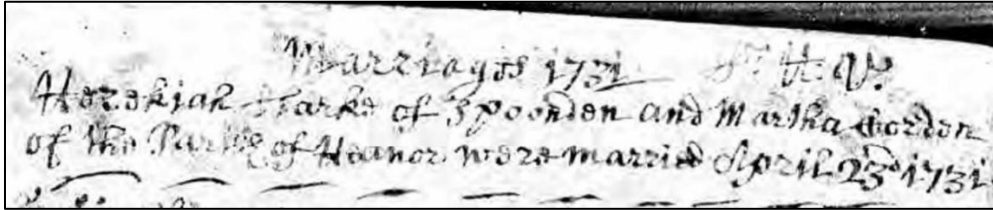 Marriages 1731
Hezekiah Clarke of Spoonden and Martha Gorden
of the Parish of Heanor were married April 23d 1731